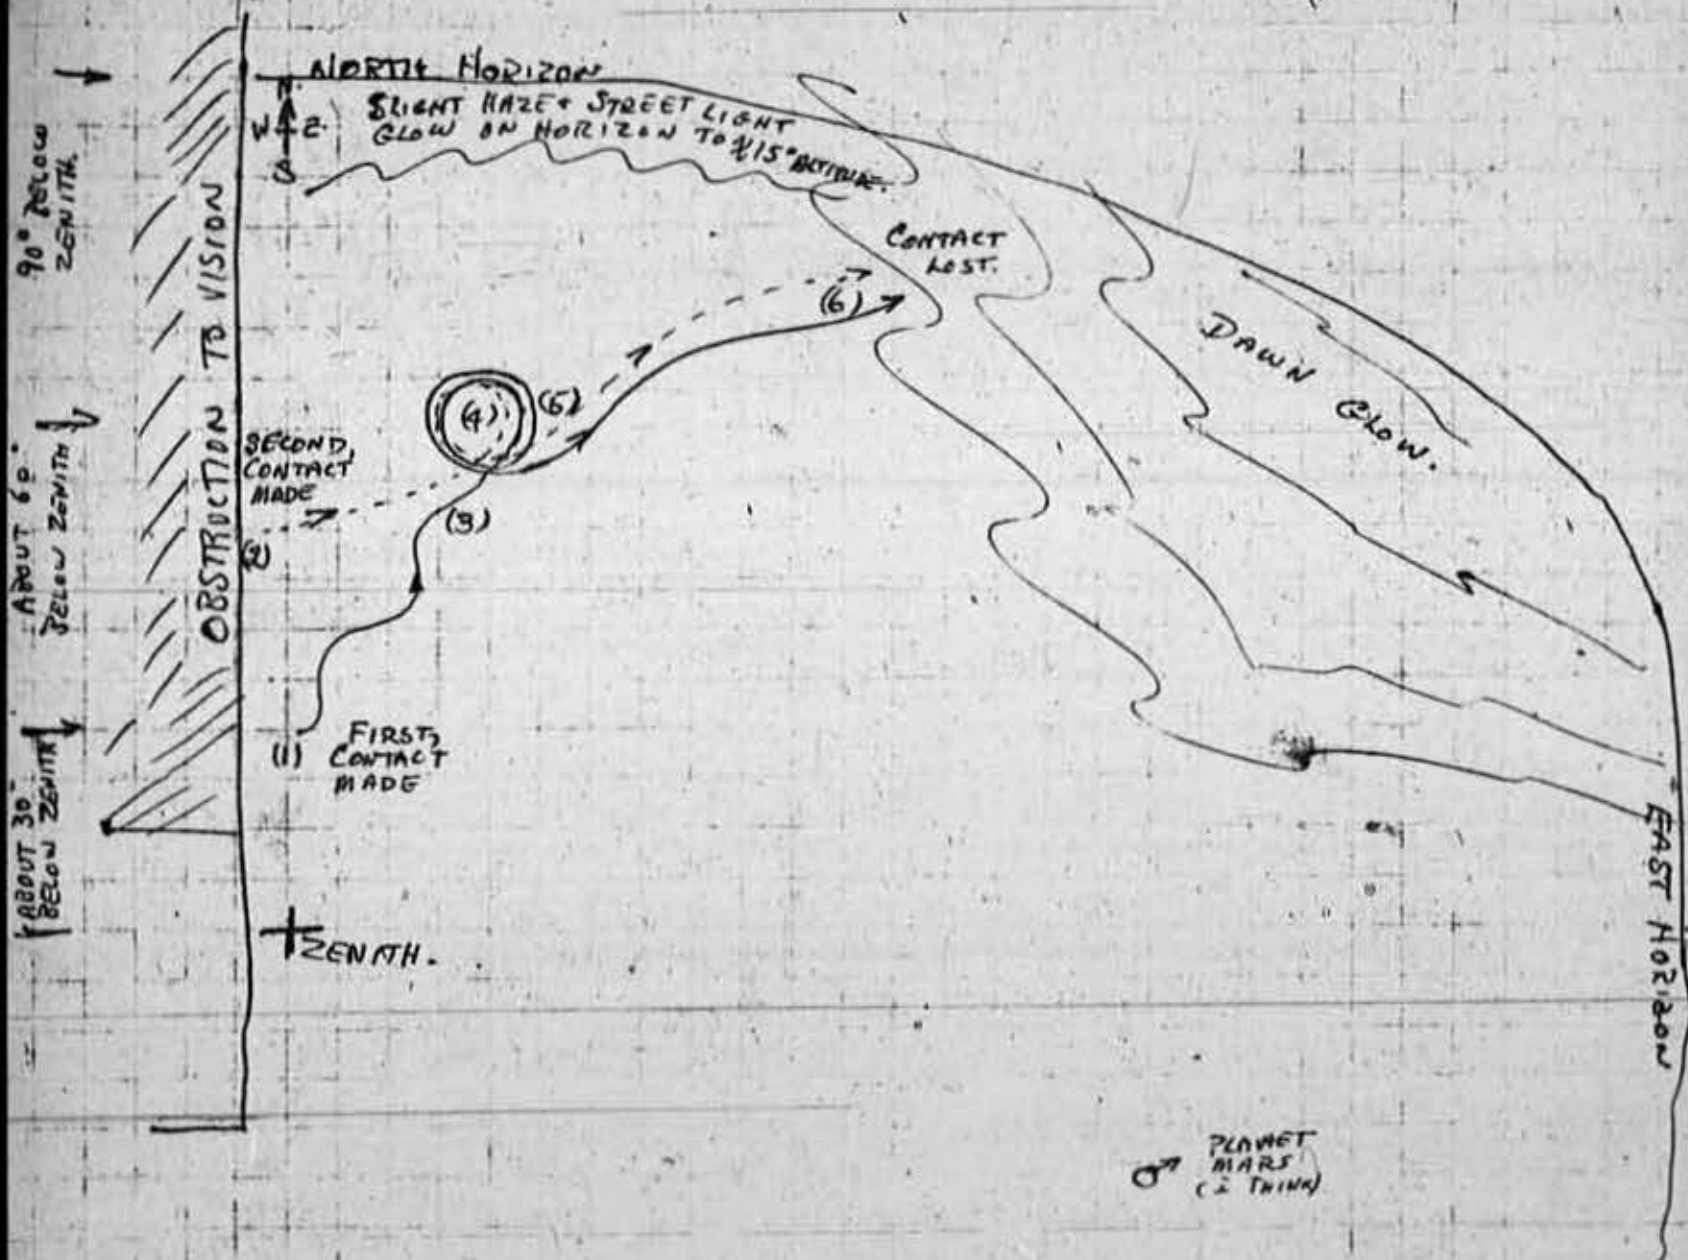 NORTH HORIZON
N
W E
S
SLIGHT HAZE + STREET LIGHT
GLOW ON HORIZON TO ±15° ALTITUDE.
90° BELOW
ZENITH.
OBSTRUCTION TO VISION
CONTACT
LOST.
(6)
DAWN GLOW.
(4)
(5)
ABOUT 60°
BELOW ZENITH
SECOND,
CONTACT
MADE
(2)
(3)
(1)
FIRST,
CONTACT
MADE
ABOUT 30°
BELOW ZENITH
ZENITH.
EAST HORIZON
♂ PLANET
MARS
(I THINK)